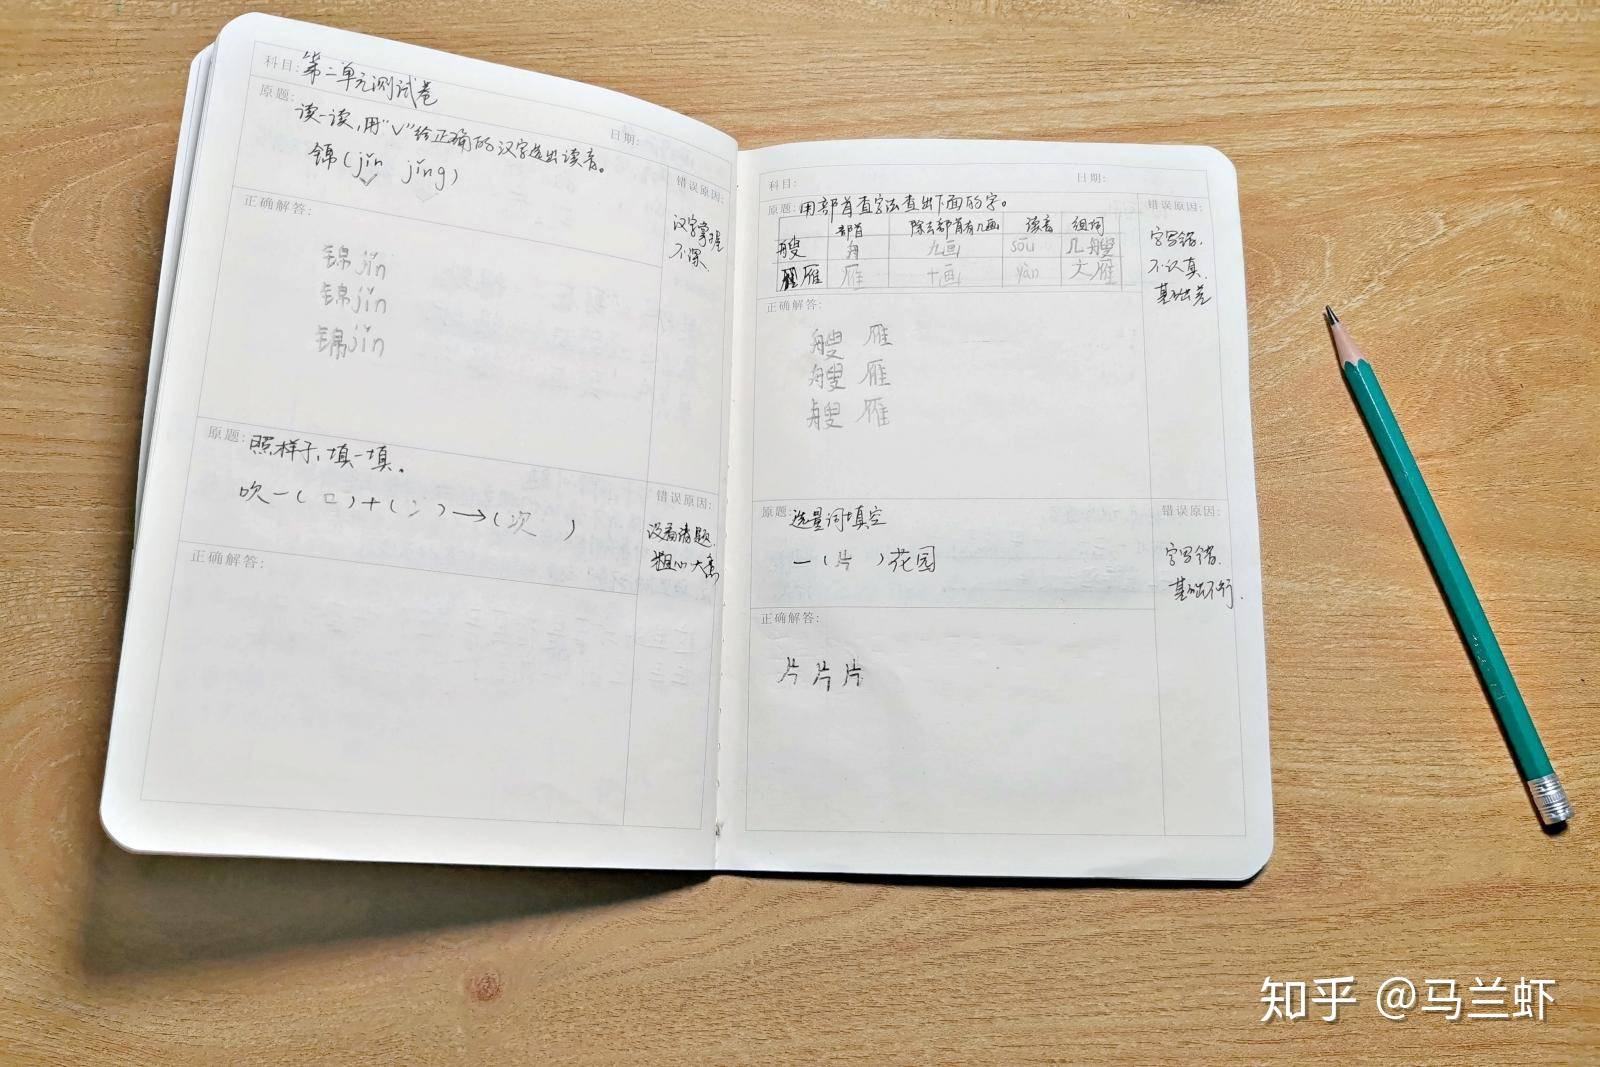 科目:第二单元测试卷
日期:
原题:
读一读,用"√"给正确的汉字选出读音。
锦(jǐn jǐng)
错误原因:
汉字掌握
不深.
正确解答:
锦jǐn
锦jǐn
锦jǐn
原题:照样子,填一填。
吹-(口)+(冫)→(次 )
错误原因:
没看清题.
粗心大意
正确解答:
科目:
日期:
原题:用部首查字法查出下面的字。
部首 除去部首有几画 读音 组词
艘 舟 九画 sōu 几艘
雁 雁 十画 yàn 大雁
错误原因:
字写错.
不认真.
基础差
正确解答:
艘 雁
艘 雁
艘 雁
原题:选量词填空
一(片 )花园
错误原因:
字写错.
基础不行.
正确解答:
片 片 片
知乎 @马兰虾